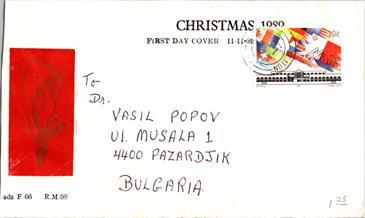 CHRISTMAS 1989
FIRST DAY COVER 11-11-89
To
Dr.
VASIL POPOV
Ul. MUSALA 1
4400 PAZARDJIK
BULGARIA
ads F 66 R.M.98
1 25